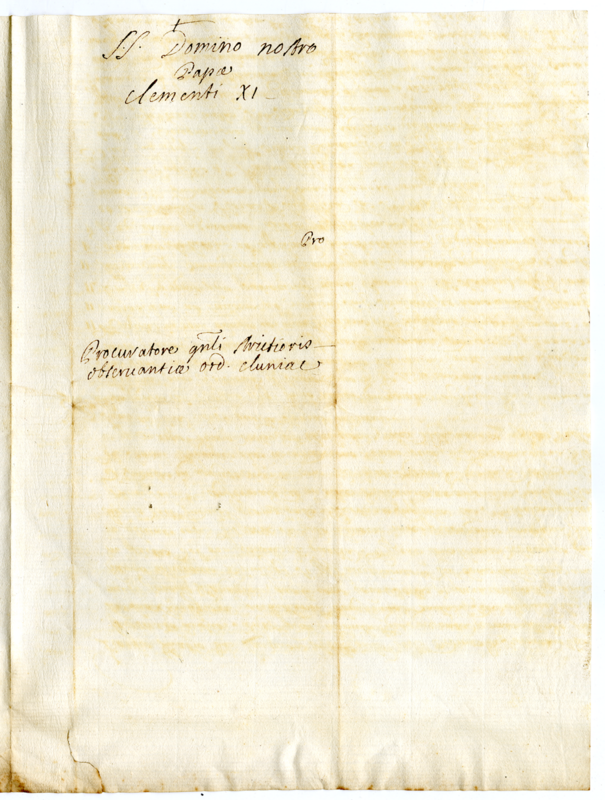 S.S. Domino nostro
Papæ
Clementi XI
Pro
Procuratore gnli strictioris
observantiæ ord. cluniac